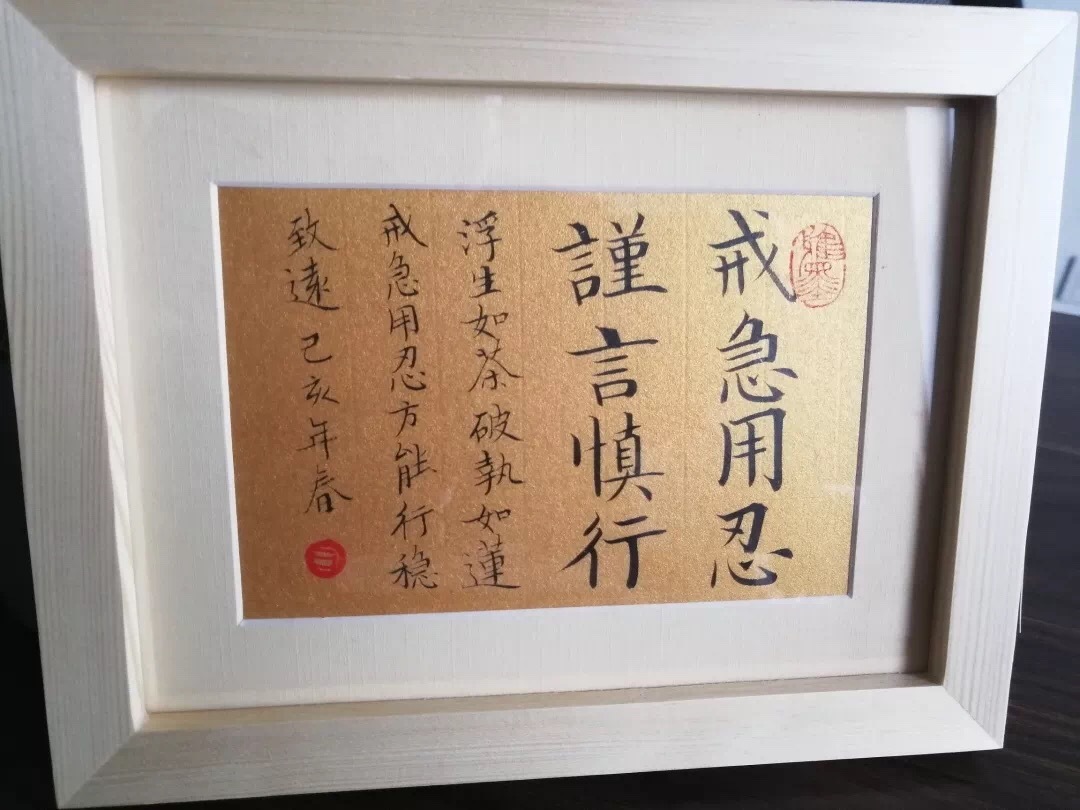 戒急用忍
謹言慎行
浮生如茶破執如蓮
戒急用忍方能行稳
致遠己亥年春